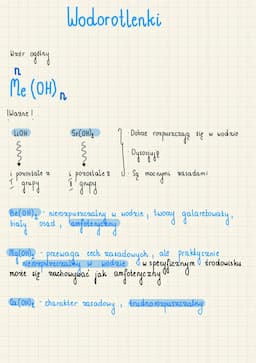 Wodorotlenki
Wzór ogólny
n
Me(OH)n
!Ważne!
LiOH Sr(OH)₂ · Dobrze rozpuszczają się w wodzie
· Dysocjują
i pozostałe z i pozostałe z · Są mocnymi zasadami
I grupy II grupy
Be(OH)₂ - nierozpuszczalny w wodzie, tworzy galaretowaty,
biały osad, amfoteryczny
Mg(OH)₂ - przewaga cech zasadowych, ale praktycznie
nierozpuszczalny w wodzie w specyficznym środowisku
może się zachowywać jak amfoteryczny
Ca(OH)₂ - charakter zasadowy, trudnorozpuszczalny